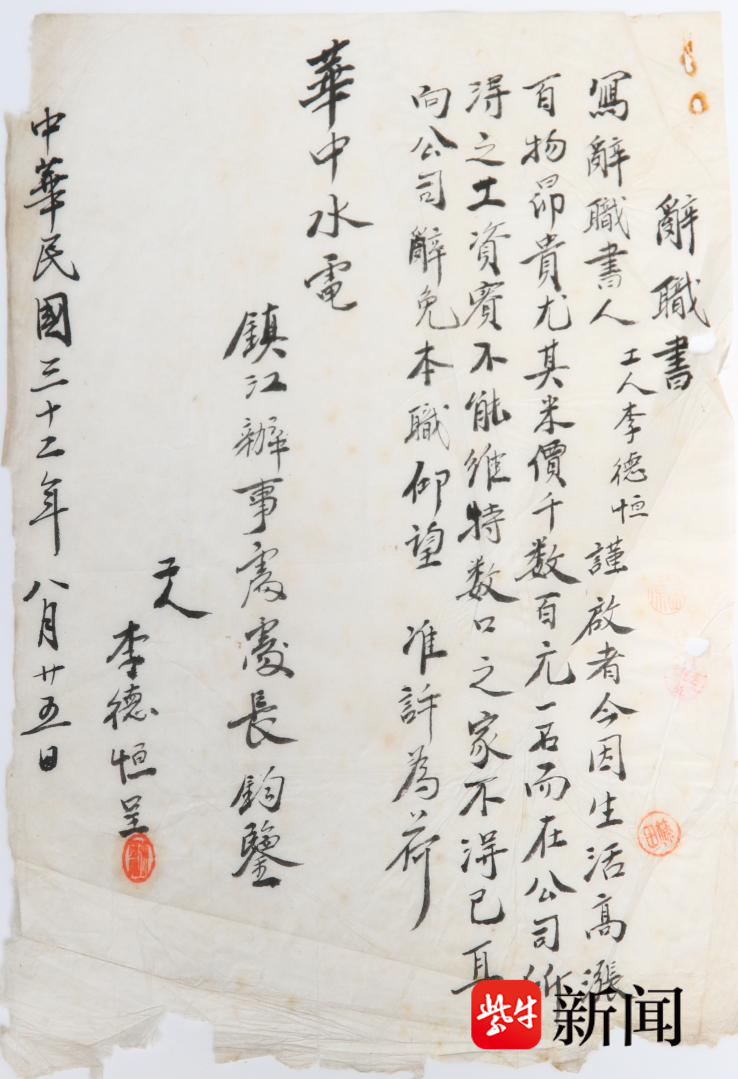 辭職書
寫辭職書人工人李德恒謹啟者今因生活高漲
百物昂貴尤其米價千数百元一石而在公司所
得之工資實不能維持数口之家不得已耳
向公司辭免本職仰望准許為荷
華中水電
鎮江辦事處處長鈞鑒
工人
李德恒呈
中華民國三十二年八月廿五日
紫牛新闻